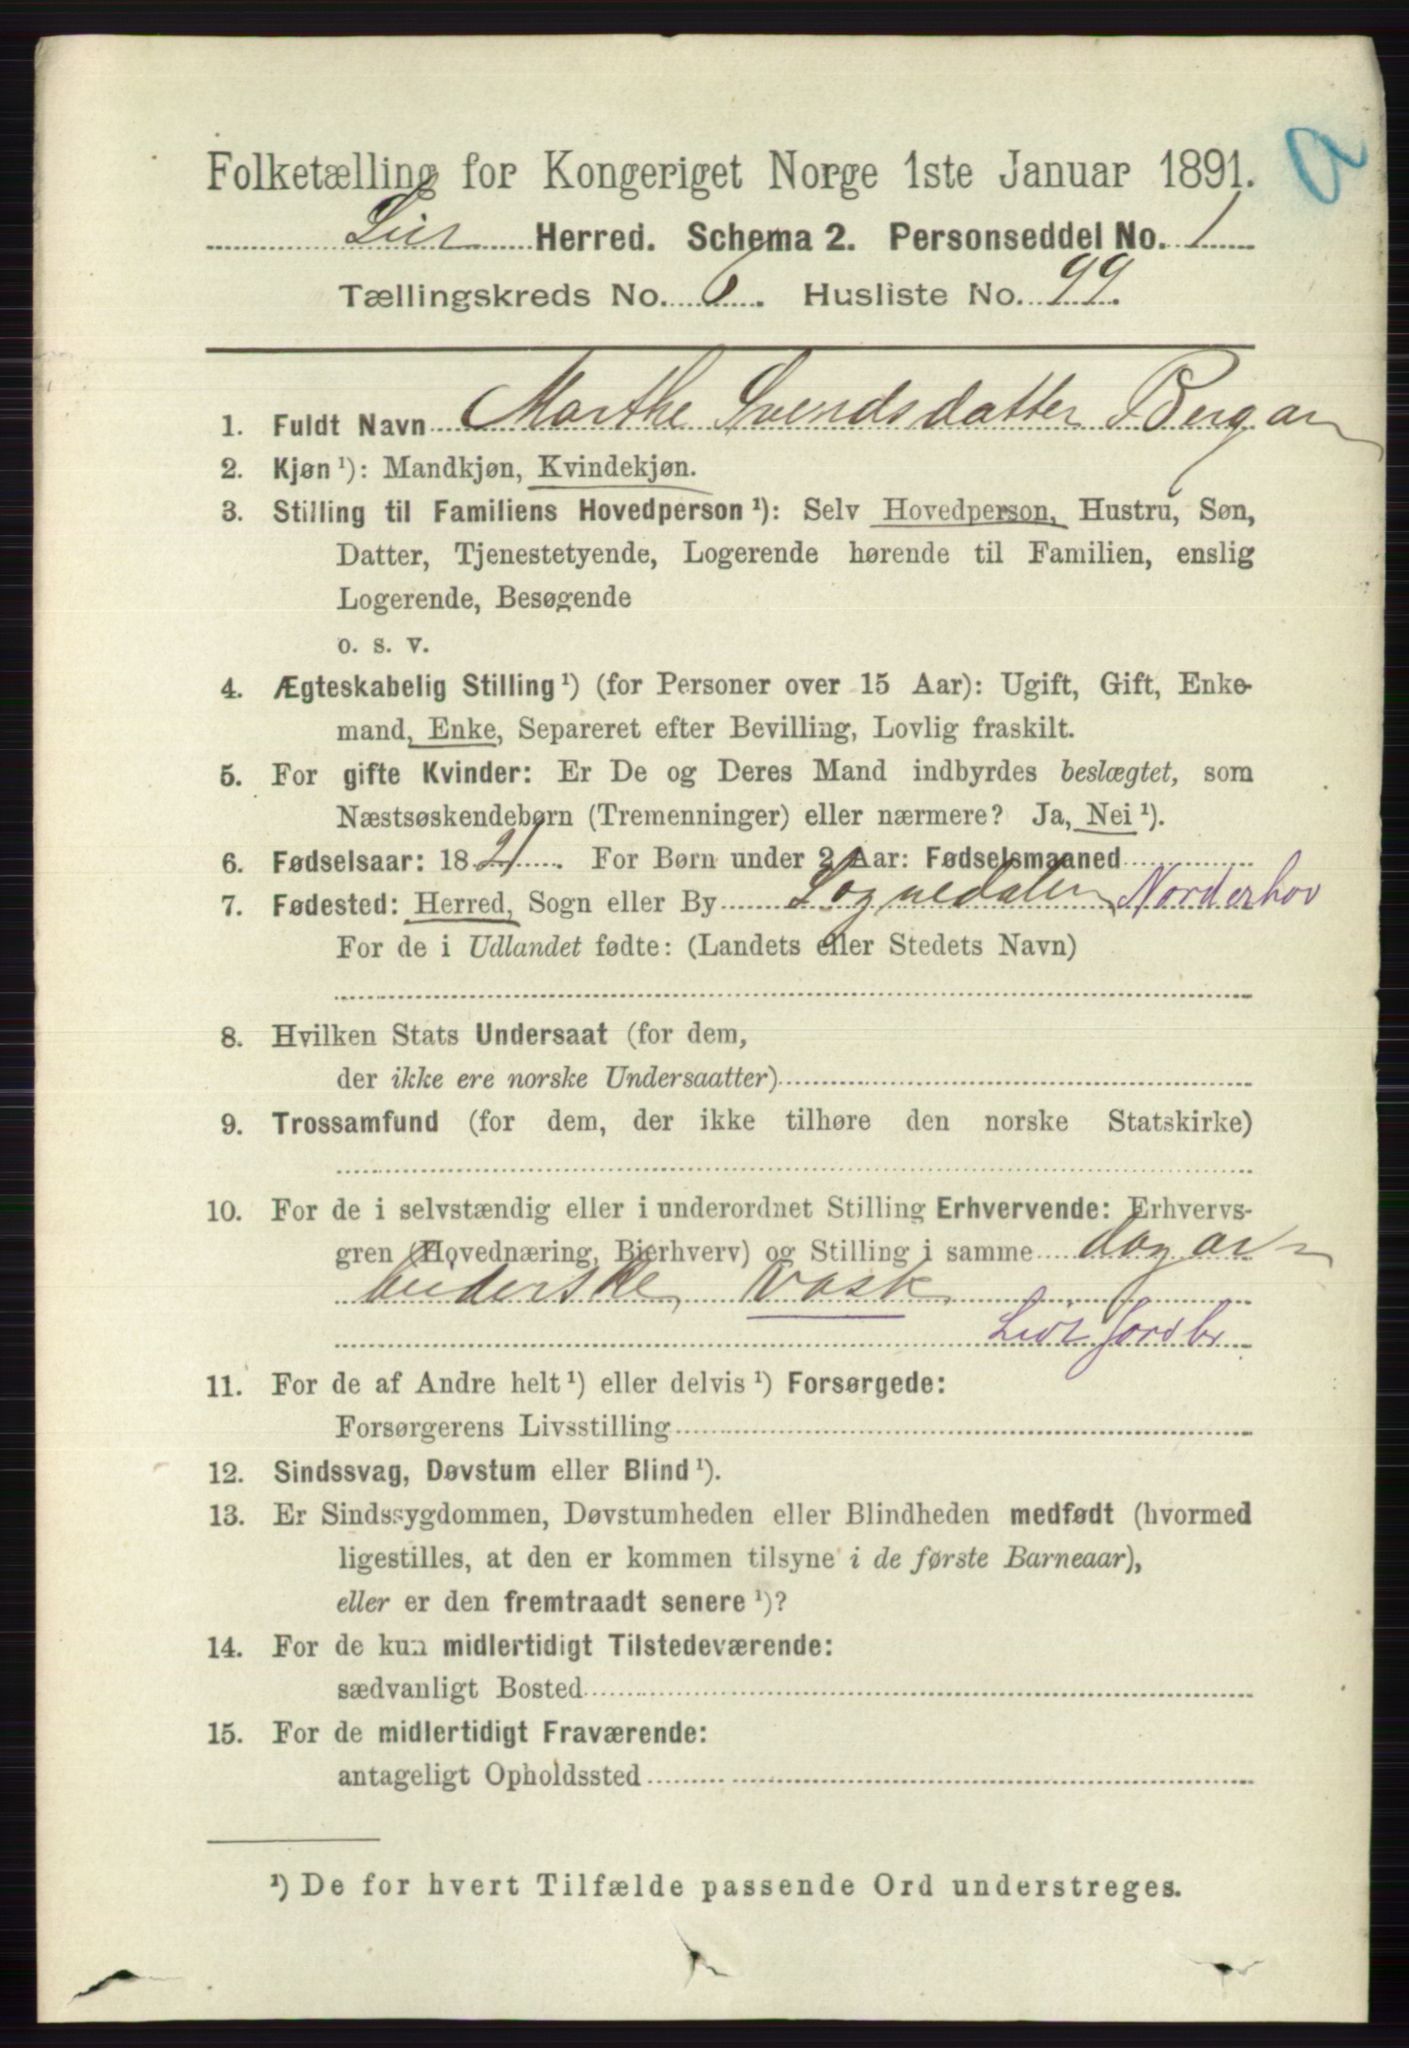 a
Folketælling for Kongeriget Norge 1ste Januar 1891.
Lier Herred. Schema 2. Personseddel No. 1
Tællingskreds No. 6. Husliste No. 99.
1. Fuldt Navn Marthe Svendsdatter Bergan
2. Kjøn ¹): Mandkjøn, Kvindekjøn.
3. Stilling til Familiens Hovedperson ¹): Selv Hovedperson, Hustru, Søn,
Datter, Tjenestetyende, Logerende hørende til Familien, enslig
Logerende, Besøgende
o. s. v.
4. Ægteskabelig Stilling ¹) (for Personer over 15 Aar): Ugift, Gift, Enke-
mand, Enke, Separeret efter Bevilling, Lovlig fraskilt.
5. For gifte Kvinder: Er De og Deres Mand indbyrdes beslægtet, som
Næstsøskendebørn (Tremenninger) eller nærmere? Ja, Nei ¹).
6. Fødselsaar: 1821. For Børn under 2 Aar: Fødselsmaaned
7. Fødested: Herred, Sogn eller By Sognedalen Norderhov
For de i Udlandet fødte: (Landets eller Stedets Navn)
8. Hvilken Stats Undersaat (for dem,
der ikke ere norske Undersaatter)
9. Trossamfund (for dem, der ikke tilhøre den norske Statskirke)
10. For de i selvstændig eller i underordnet Stilling Erhvervende: Erhvervs-
gren (Hovednæring, Bierhverv) og Stilling i samme dagar-
beiderske, Vask
Lidt Jordbr
11. For de af Andre helt ¹) eller delvis ¹) Forsørgede:
Forsørgerens Livsstilling
12. Sindssvag, Døvstum eller Blind ¹).
13. Er Sindssygdommen, Døvstumheden eller Blindheden medfødt (hvormed
ligestilles, at den er kommen tilsyne i de første Barneaar),
eller er den fremtraadt senere ¹)?
14. For de kun midlertidigt Tilstedeværende:
sædvanligt Bosted
15. For de midlertidigt Fraværende:
antageligt Opholdssted
¹) De for hvert Tilfælde passende Ord understreges.